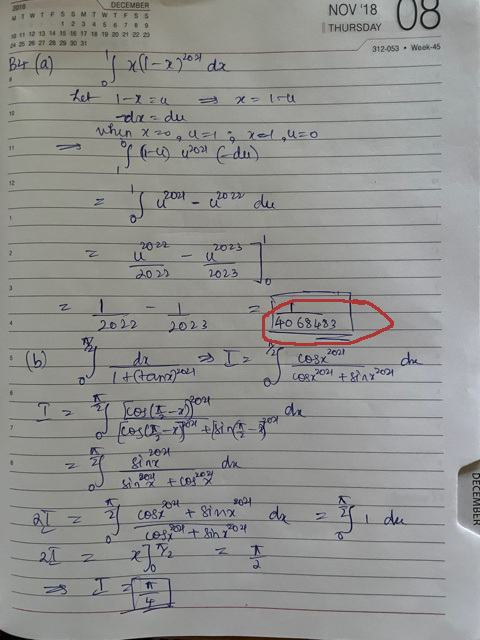 2018 DECEMBER
M T W T F S S M T W T F S S M T W T F S S
1 2 3 4 5 6 7 8 9
10 11 12 13 14 15 16 17 18 19 20 21 22 23
24 25 26 27 28 29 30 31
NOV '18 08
THURSDAY
312-053 • Week-45
B4 (a) ∫₀¹ x(1-x)²⁰²¹ dx
9
Let 1-x = u ⇒ x = 1-u
10
-dx = du
when x=0, u=1 ; x=1, u=0
11
⇒ ∫₁⁰ (1-u) u²⁰²¹ (-du)
12
= ∫₀¹ u²⁰²¹ - u²⁰²² du
1
2
= u²⁰²²/2022 - u²⁰²³/2023 ]₀¹
3
= 1/2022 - 1/2023 = 1/4068483
4
(b) ∫₀^{π/2} dx/(1+(tanx)²⁰²¹) ⇒ I = ∫₀^{π/2} cosx²⁰²¹/(cosx²⁰²¹ + sinx²⁰²¹) dx
5
6
I = ∫₀^{π/2} [cos(π/2-x)]²⁰²¹/([cos(π/2-x)]²⁰²¹ + [sin(π/2-x)]²⁰²¹) dx
7
= ∫₀^{π/2} sinx²⁰²¹/(sin²⁰²¹x + cos²⁰²¹x) dx
8
2I = ∫₀^{π/2} (cosx²⁰²¹ + sinx²⁰²¹)/(cosx²⁰²¹ + sinx²⁰²¹) dx = ∫₀^{π/2} 1 dx
2I = x]₀^{π/2} = π/2
⇒ I = π/4
DECEMBER